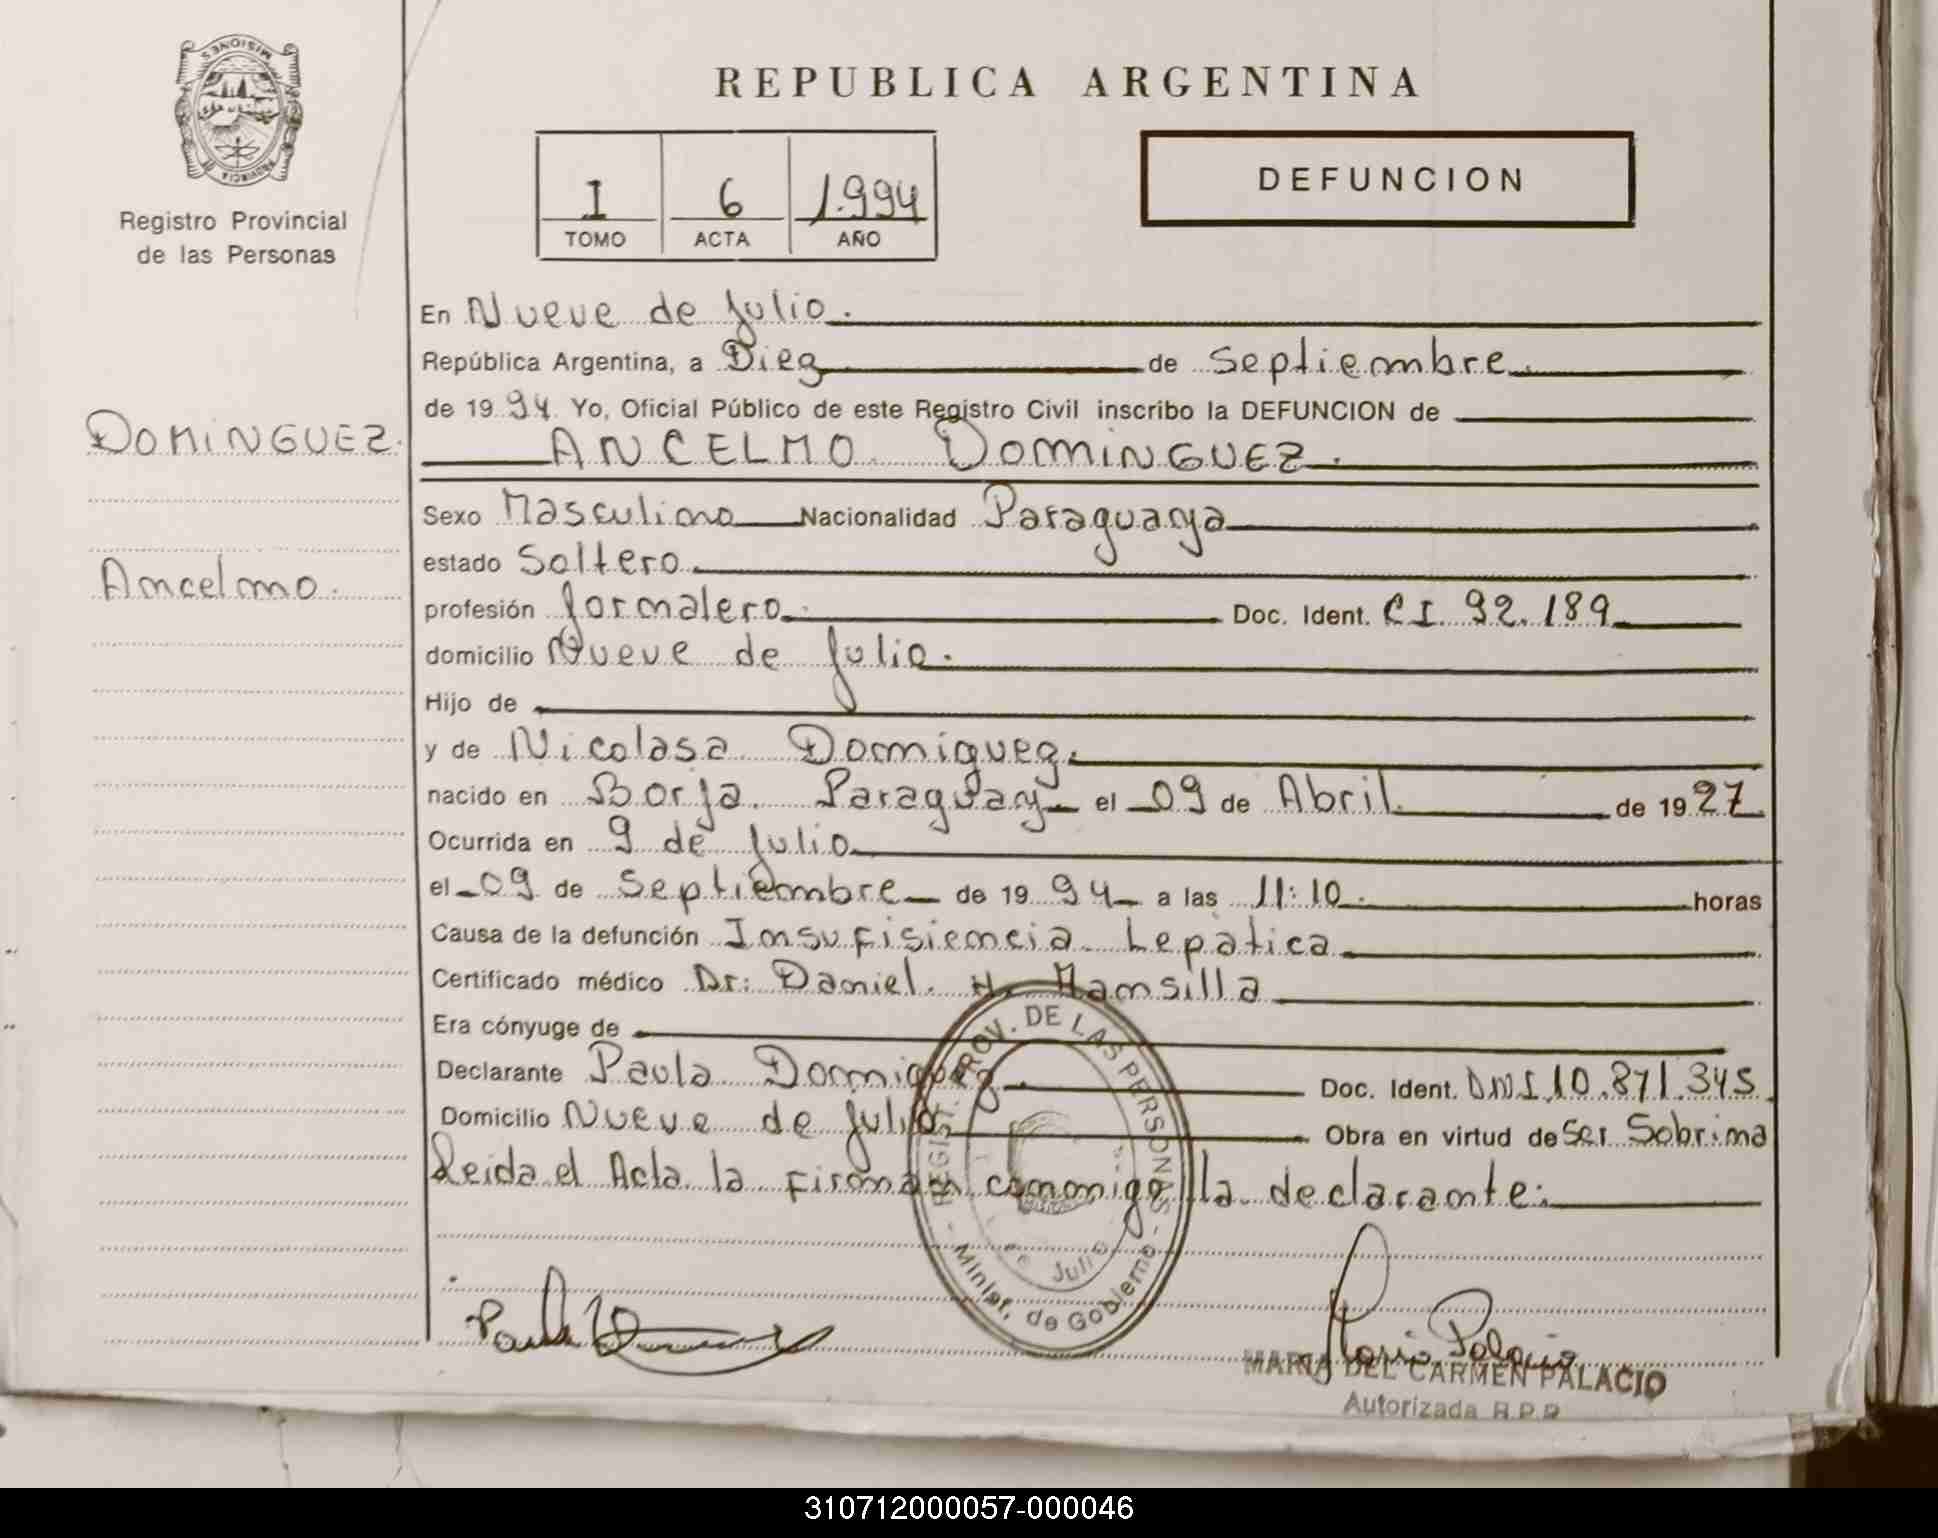 MISIONES
PROVINCIA DE
Registro Provincial
de las Personas
REPUBLICA ARGENTINA
I 6 1.994
TOMO ACTA AÑO
DEFUNCION
En Nueve de Julio.
República Argentina, a Diez de Septiembre.
de 1994. Yo, Oficial Público de este Registro Civil inscribo la DEFUNCION de
DOMINGUEZ.
ANCELMO DOMINGUEZ.
Sexo Masculino Nacionalidad Paraguaya
estado Soltero.
Ancelmo.
profesión Jornalero. Doc. Ident. CI. 92.189
domicilio Nueve de Julio.
Hijo de
y de Nicolasa Domiguez.
nacido en Borja. Paraguay el 09 de Abril. de 1927.
Ocurrida en 9 de Julio
el 09 de Septiembre de 1994 a las 11:10. horas
Causa de la defunción Insufisiencia Lepatica
Certificado médico Dr: Daniel. H. Mansilla
Era cónyuge de
Declarante Paula Domiguez. Doc. Ident. DNI.10.871.345.
Domicilio Nueve de Julio. Obra en virtud de Ser Sobrina
Leida el Acta la Firman conmigo la declarante:
REGIST. PROV. DE LAS PERSONAS - Minist. de Gobierno -
Julio
Maria Palacio
MARIA DEL CARMEN PALACIO
Autorizada R.P.P.
310712000057-000046